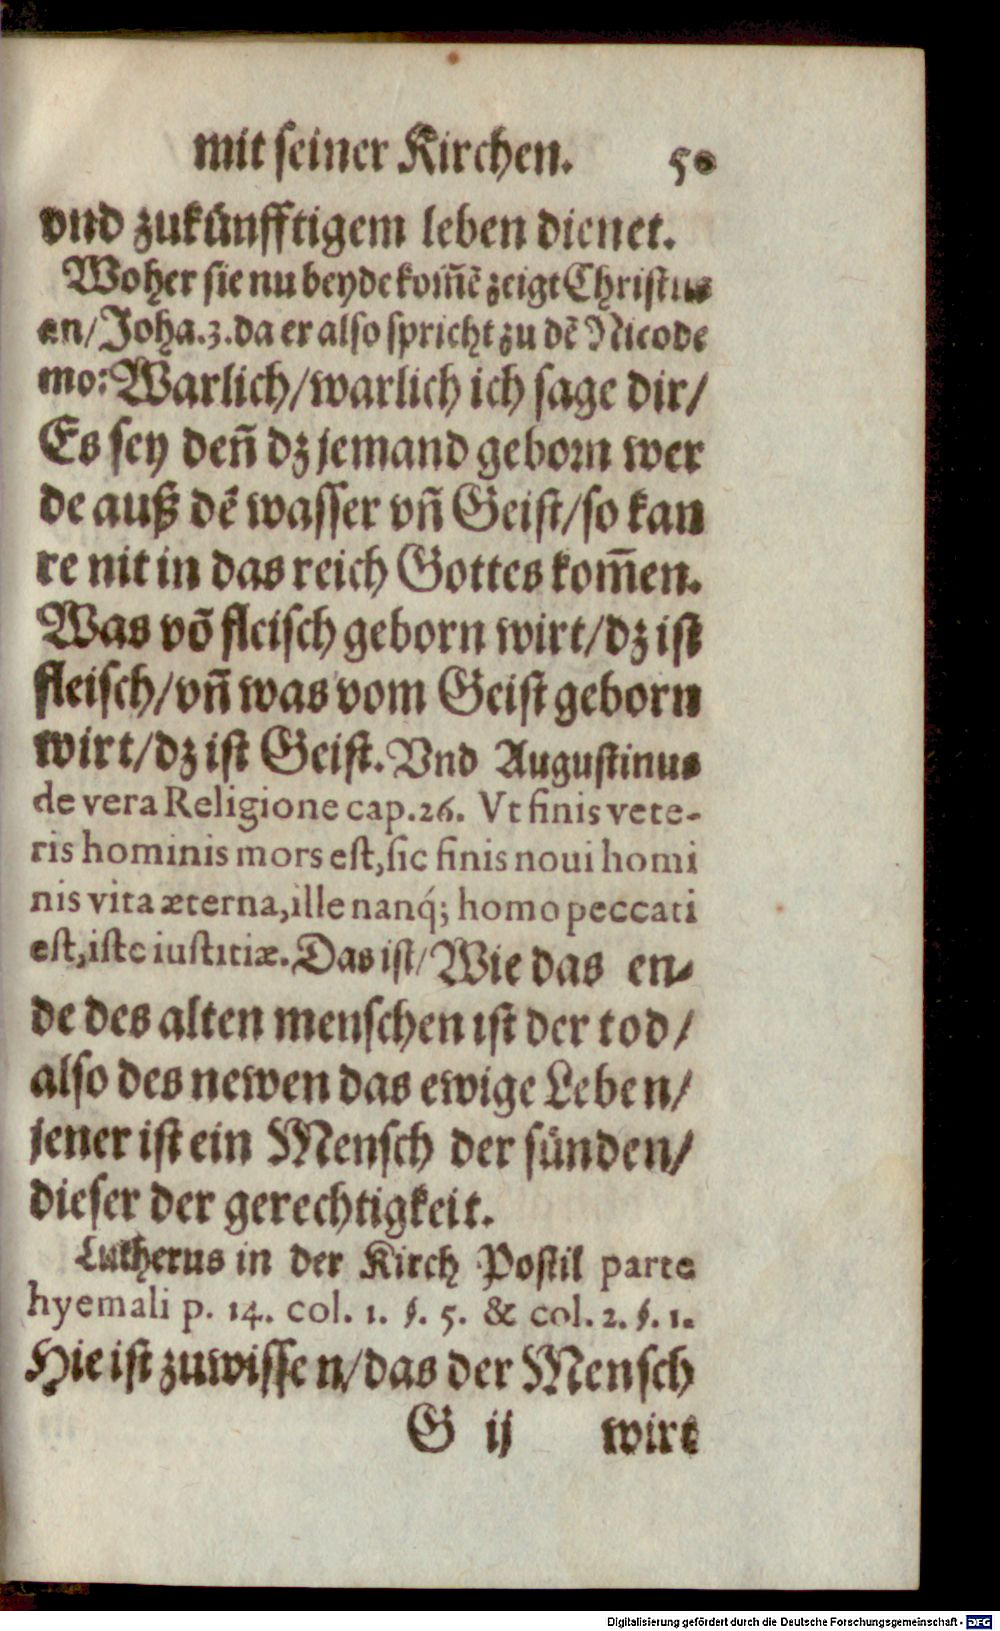 mit seiner Kirchen. 50
vnd zukünfftigem leben dienet.
Woher sie nu beyde kom̃ẽ zeigt Christus
an/ Joha.3. da er also spricht zu dẽ Nicode
mo: Warlich/ warlich ich sage dir/
Es sey deñ dz jemand geborn wer
de auß dẽ wasser vñ Geist/ so kan
re nit in das reich Gottes kom̃en.
Was võ fleisch geborn wirt/ dz ist
fleisch/ vñ was vom Geist geborn
wirt/ dz ist Geist. Vnd Augustinus
de vera Religione cap.26. Vt finis vete-
ris hominis mors est, sic finis noui homi
nis vita æterna, ille nanq́; homo peccati
est, iste iustitiæ. Das ist/ Wie das en-
de des alten menschen ist der tod/
also des newen das ewige Leben/
jener ist ein Mensch der sünden/
dieser der gerechtigkeit.
Lutherus in der Kirch Postil parte
hyemali p. 14. col. 1. §. 5. & col. 2. §. 1.
Hie ist zuwissen/ das der Mensch
G ij wirt
Digitalisierung gefördert durch die Deutsche Forschungsgemeinschaft - DFG